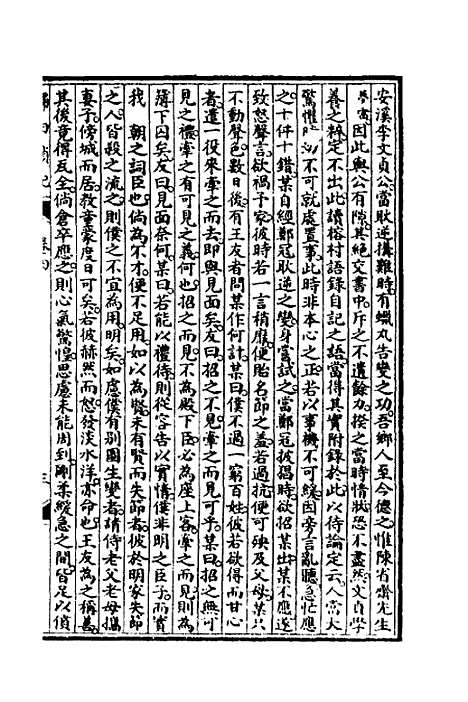 安溪李文貞公當耿逆搆難時有蠟丸告變之功吾鄉人至今德之惟陳省齋先生
夢雷因此與公有隙其絕交書中斥之不遺餘力揆之當時情狀恐不盡然文貞學
養之粹定不出此讀榕村語錄自記之語當得其實附錄於此以待論定云人當大
驚懼時不可就處置事此時非本心之正若以事機不可緩因旁言亂聽急忙應
之十件十錯某自經鄭冠耿逆之變身嘗試之當鄭冠披猖時欲招某出某不應遂
致怒聲言欲禍予家彼時若一言稍靡便胎名節之羞若過抗便可殃及父母某只
不動聲色數日後有王友者問某作何計某曰僕不過一窮百姓彼若欲得而甘心
者遣一役來牽之而去即與見面矣友曰招之不見牽之而見可乎某曰招之無可
見之禮牽之有可見之義何也招之而見不為殿下臣必為座上客牽之而見則為
簿下囚矣友曰見面奈何某曰若能以禮待則從容告以實情僕非明之臣子而實
我 朝之詞臣也倘為不才便不足用如以為賢未有賢而失節者彼於明家失節
之人皆殺之流之則僕之不宜為用明矣如慮僕有別圖生變者請侍老父老母攜
妻子傍城而居教童蒙度日可矣若彼赫然而怒發淡水洋亦命也王友為之稱善
其後竟得瓦全倘倉卒應之則心氣驚惶思慮未能周到剛柔緩急之間皆足以僨
歸田瑣記 卷四 三